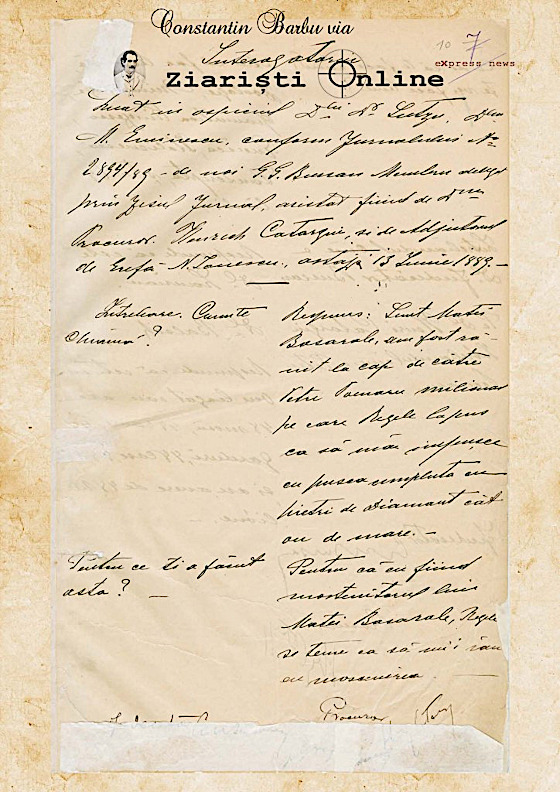 Constantin Barbu via
10 7
Interogatoriu
express news
Ziariști Online
luat în ospiciul D-lui Dr. Sutzu, D-lui
M. Eminescu, conform Jurnalului No
2894/89 de noi G.G. Bursan Membru delegat
prin zisul Jurnal, asistat fiind de D-nu
Procuror Henrich Catargiu, și de Adjutorul
de Grefă N. Ionescu, astăzi 13 Iunie 1889.—
Întrebare. Cum te
chiamă?
Respuns: Sunt Matei
Basarab, am fost ră-
nit la cap de către
Petre Poenaru milionar
pe care Regele l'a pus
ca să mă împușce
cu pușca umplută cu
pietri de diamant cât
ou de mare.—
Pentru ce ți a făcut
asta? —
Pentru că eu fiind
moștenitorul lui
Matei Basarab, Regele
se teme ca să nu'i iau
eu moștenirea
Procuror,